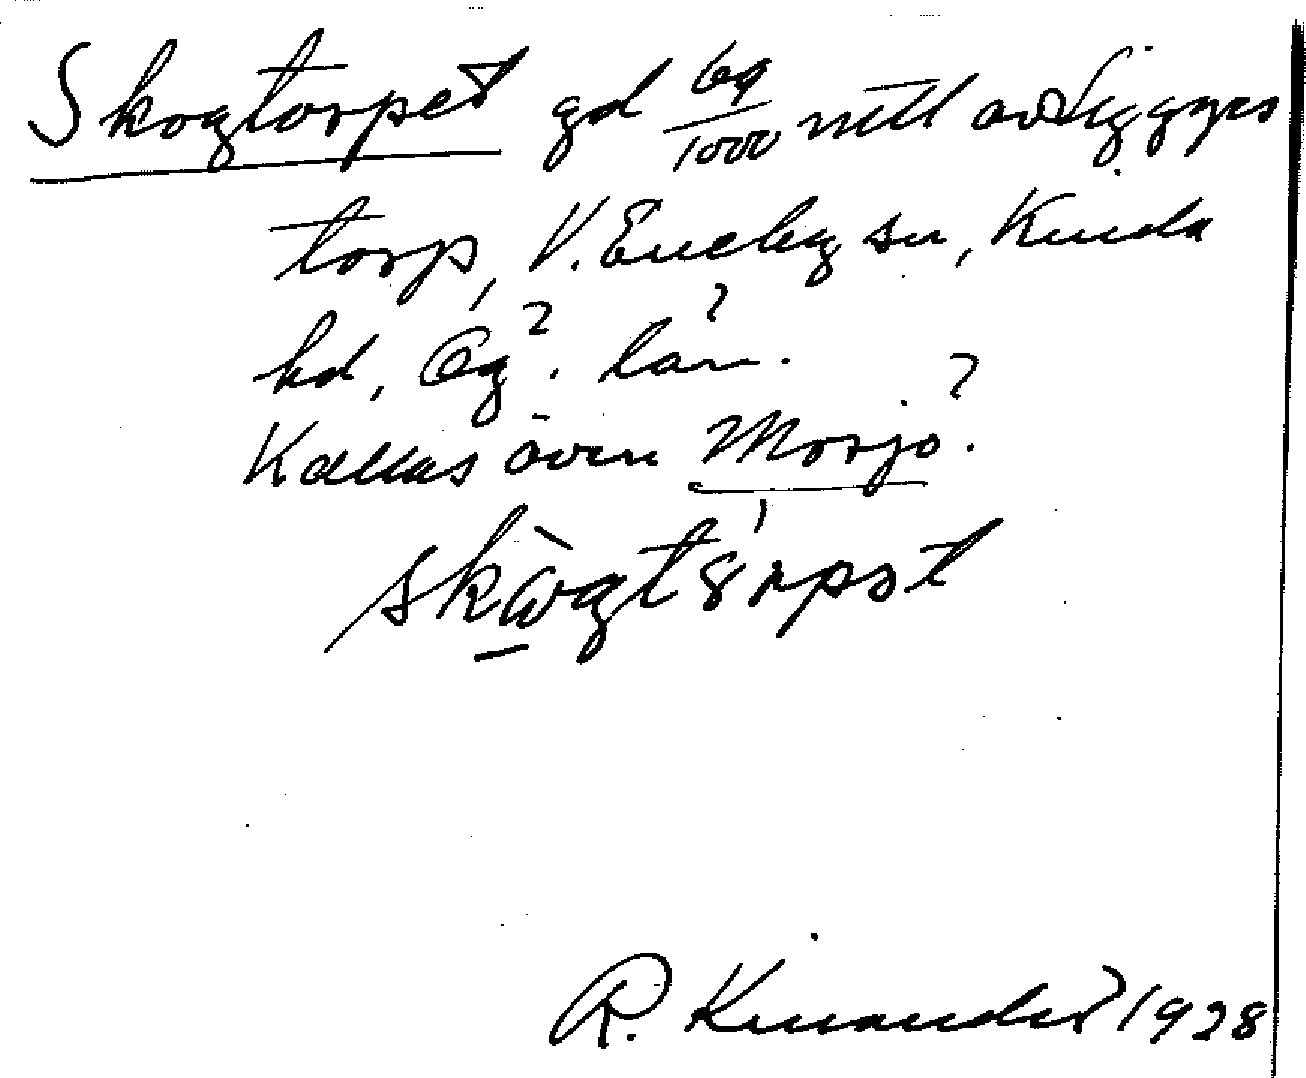 Skogtorpet gd 69/1000 mtl av Sigges
torp, V. Eneby sn, Kinda
hd, Ög. län.
Kallas även Morjo.
R. Kinander 1928